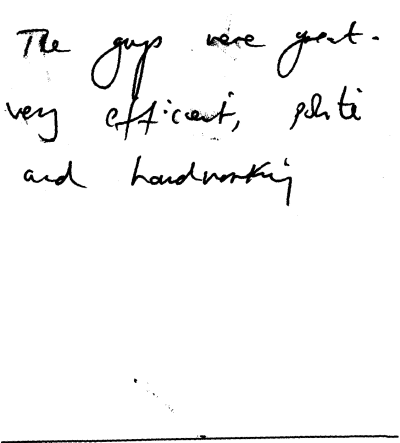 The guys were great.
very efficient, polite
and hardworking